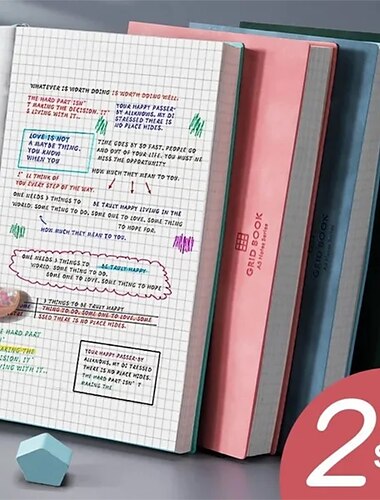 WHATEVER IS WORTH DOING IS WORTH DOING WELL.
THE HARD PART ISN'
T MAKING THE DECISION. IT'
S LIVING WITH IT..
YOUR HAPPY PASSER-BY
ALLKNOWS, MY DI
STRESSED TO IS
NO PLACE HIDES.
LOVE IS NOT
A MAYBE THING.
YOU KNOW
WHEN YOU
TIME GOES BY SO FAST, PEOPLE GO
AND OUT OF YOUR LIFE. YOU MUST NE
MISS THE OPPORTUNITY
HOW MUCH THEY MEAN TO YOU.
I' LL THINK OF
YOU EVERY STEP OF THE WAY.
ONE NEEDS 3 THINGS TO BE TRULY HAPPY LIVING IN THE
WORLD. SOME THING TO DO, SOME ONE TO LOVE, SOME THING
TO HOPE FOR.
HOW MUCH THEY MEAN TO YOU.
ONE NEEDS 3 THINGS TO BE TRULY HAPPY
WORLD. SOME THING TO DO.
SOME ONE TO LOVE, SOME THING TO HOPE
3 THINGS TO BE TRULY HAPPY
THING TO DO, SOME ONE TO LOVE, SOME
SSED THERE IS NO PLACE HIDES.
E HARD PART
AKING THE
ECISION. IT'
VING WITH IT..
YOUR HAPPY PASSER-BY
ALLKNOWS, MY DI
STRESSED THERE IS NO PLACE HIDES.
THE HARD PART ISN' T
MAKING THE
GRID BOOK
A5 Notes Series
GRID BOOK
A5 Notes Series
2